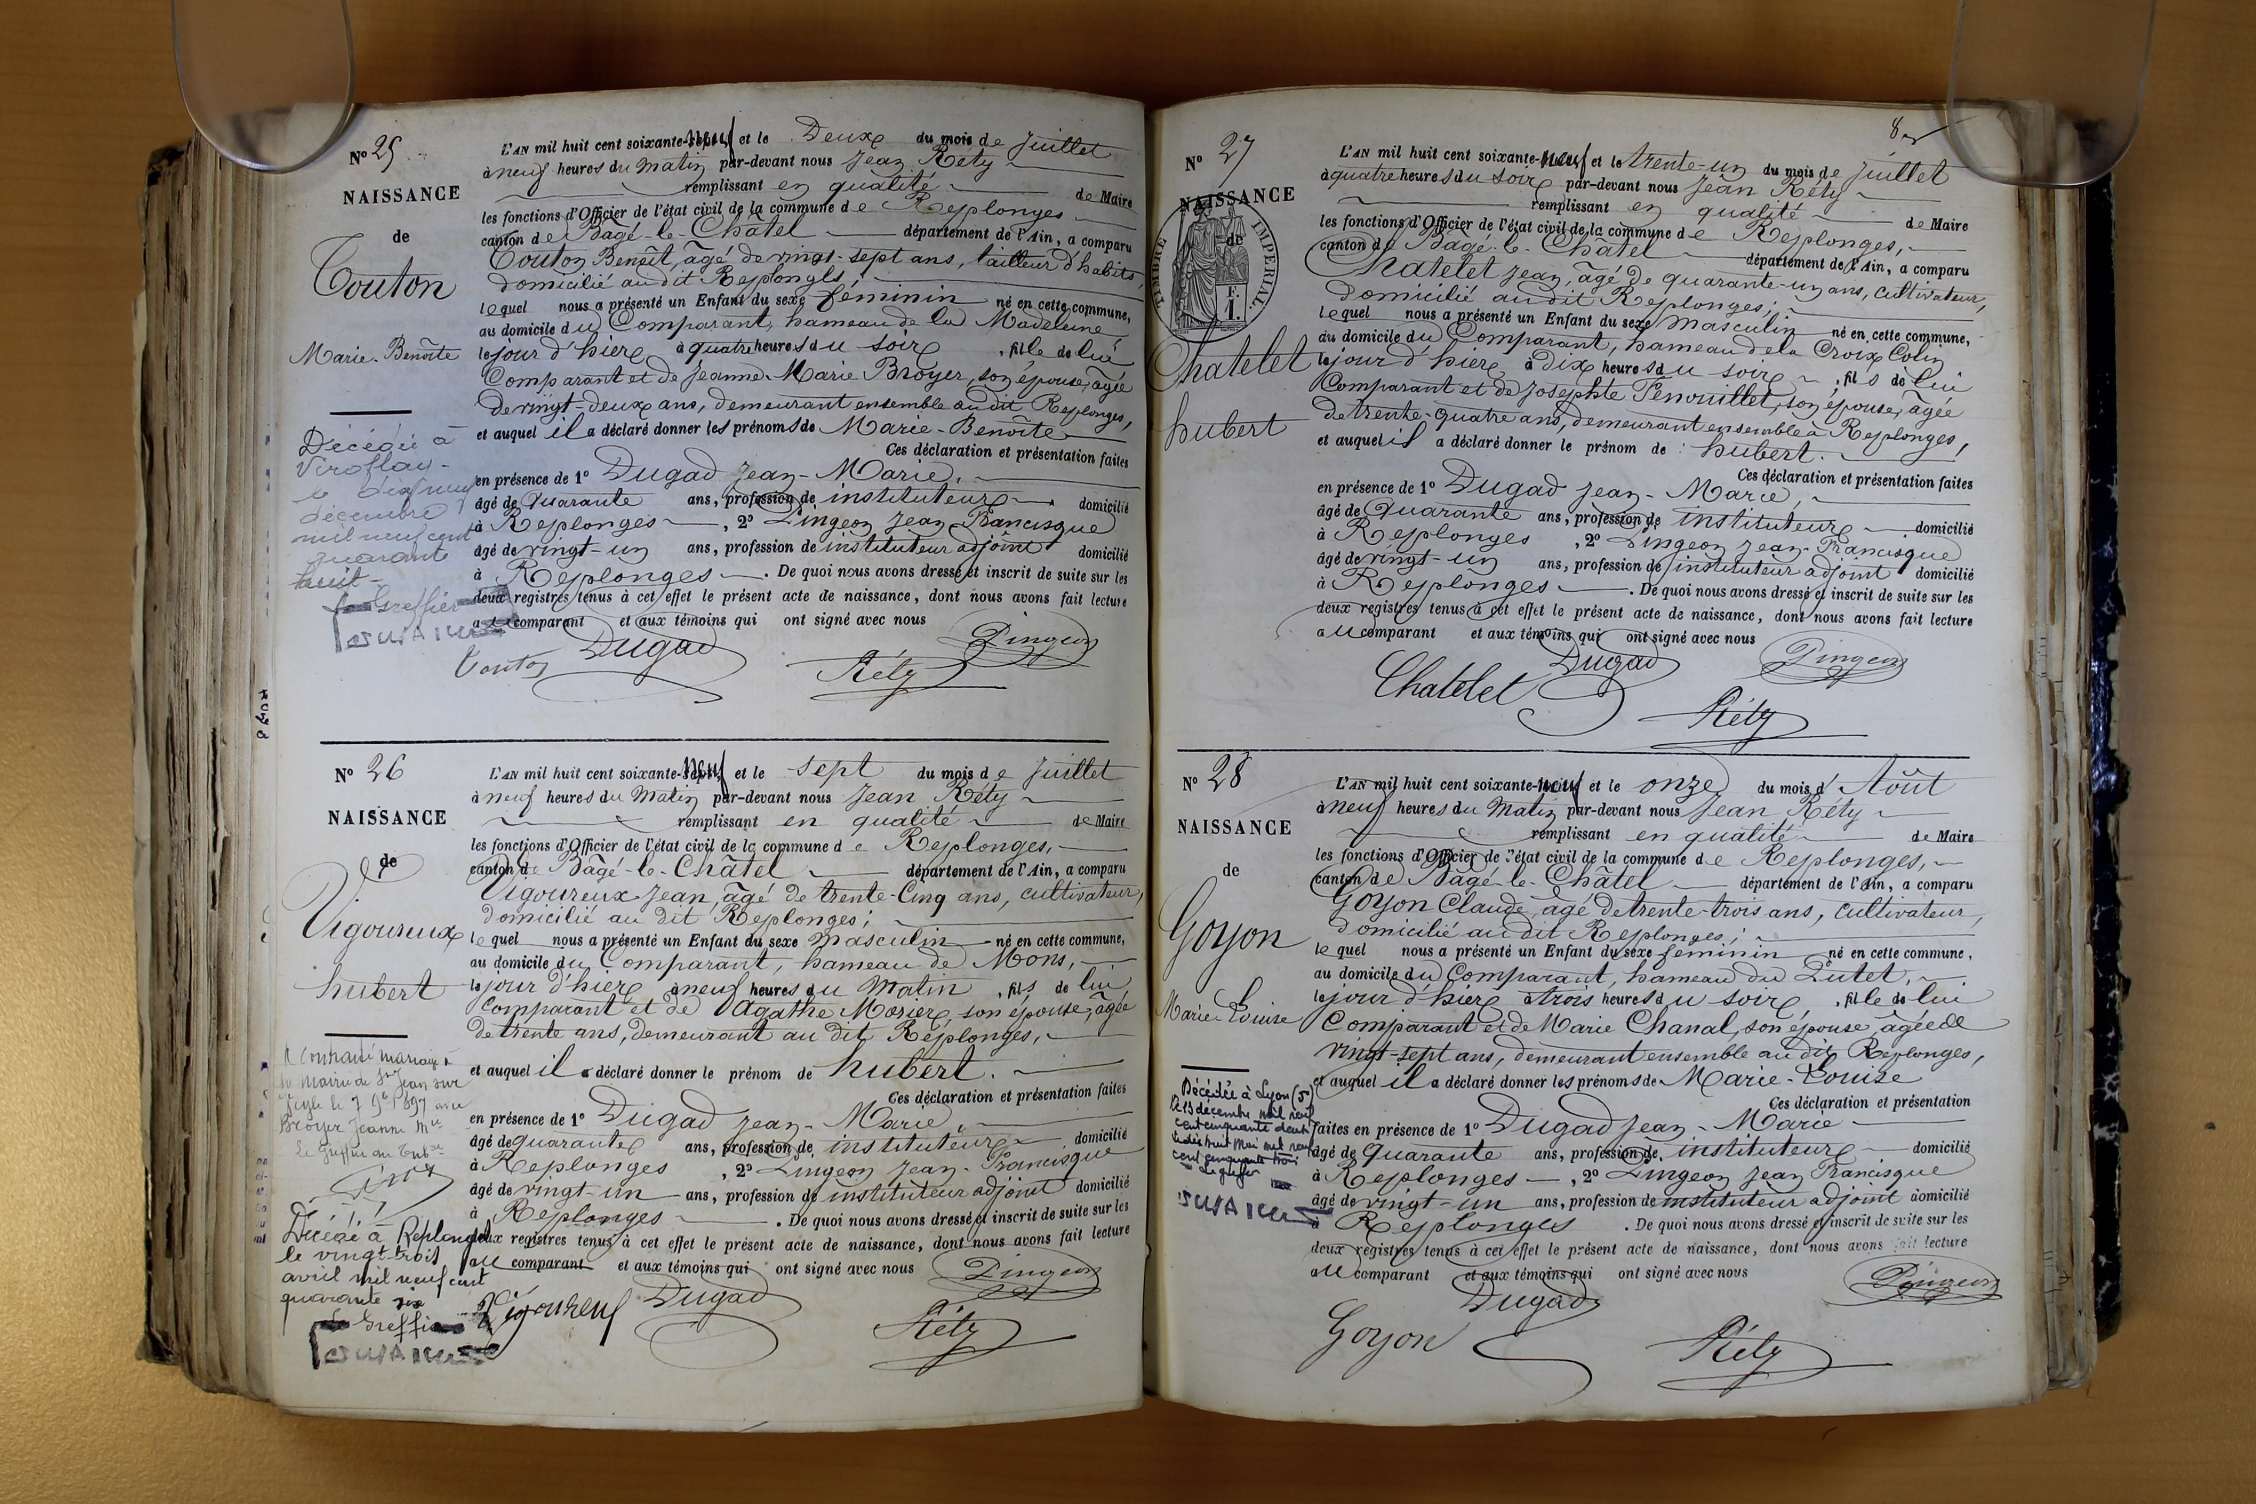 N° 25
NAISSANCE
de
Touton
Marie-Benoîte
Décédée à
Viroflay
le dix neuf
décembre
mil neuf cent
quarante
huit
Le Greffier
L'AN mil huit cent soixante-neuf et le Deux du mois de Juillet
à neuf heures du Matin par-devant nous Jean Réty
remplissant en qualité de Maire
les fonctions d'Officier de l'état civil de la commune de Replonges
canton de Bâgé-le-Châtel département de l'Ain, a comparu
Touton Benoît, âgé de vingt-sept ans, tailleur d'habits,
domicilié au dit Replonges,
lequel nous a présenté un Enfant du sexe féminin né en cette commune,
au domicile du Comparant, hameau de la Madeleine
le jour d'hier à quatre heures du soir, fille de lui
Comparant et de Jeanne-Marie Broyer, son épouse, âgée
de vingt-deux ans, demeurant ensemble au dit Replonges,
et auquel il a déclaré donner les prénoms de Marie-Benoîte
Ces déclaration et présentation faites
en présence de 1° Dugad Jean-Marie,
âgé de Quarante ans, profession de instituteur domicilié
à Replonges, 2° Pingeon Jean-Francisque
âgé de vingt-un ans, profession de instituteur adjoint domicilié
à Replonges. De quoi nous avons dressé et inscrit de suite sur les
deux registres tenus à cet effet le présent acte de naissance, dont nous avons fait lecture
au comparant et aux témoins qui ont signé avec nous
Touton Dugad Réty Pingeon
N° 26
NAISSANCE
de
Vigoureux
hubert
A contracté mariage à
la Mairie de St Jean sur
Veyle le 7 9bre 1897 avec
Broyer Jeanne Mie
Le Greffier du Tribal
Décédé à Replonges
le vingt-trois
avril mil neuf cent
quarante six
Le Greffier
L'AN mil huit cent soixante-neuf et le sept du mois de Juillet
à neuf heures du Matin par-devant nous Jean Réty
remplissant en qualité de Maire
les fonctions d'Officier de l'état civil de la commune de Replonges,
canton de Bâgé-le-Châtel département de l'Ain, a comparu
Vigoureux Jean, âgé de trente-Cinq ans, cultivateur,
domicilié au dit Replonges;
lequel nous a présenté un Enfant du sexe masculin né en cette commune,
au domicile du Comparant, hameau de Mons,
le jour d'hier à neuf heures du Matin, fils de lui
Comparant et de Agathe Morier, son épouse, âgée
de trente ans, demeurant au dit Replonges,
et auquel il a déclaré donner le prénom de hubert.
Ces déclaration et présentation faites
en présence de 1° Dugad Jean-Marie,
âgé de quarante ans, profession de instituteur domicilié
à Replonges, 2° Pingeon Jean-Francisque
âgé de vingt-un ans, profession de instituteur adjoint domicilié
à Replonges. De quoi nous avons dressé et inscrit de suite sur les
deux registres tenus à cet effet le présent acte de naissance, dont nous avons fait lecture
au comparant et aux témoins qui ont signé avec nous
Vigoureux Dugad Réty Pingeon
N° 27
NAISSANCE
de
TIMBRE IMPERIAL
Chatelet
hubert
L'AN mil huit cent soixante-neuf et le trente-un du mois de Juillet
à quatre heures du soir par-devant nous Jean Réty
remplissant en qualité de Maire
les fonctions d'Officier de l'état civil de la commune de Replonges,
canton de Bâgé-le-Châtel département de l'Ain, a comparu
Chatelet Jean, âgé de quarante-un ans, cultivateur,
domicilié au dit Replonges;
lequel nous a présenté un Enfant du sexe masculin né en cette commune,
au domicile du Comparant, hameau de la Croix Colin
le jour d'hier à dix heures du soir, fils de lui
Comparant et de Josephte Fenouillet, son épouse, âgée
de trente-quatre ans, demeurant ensemble à Replonges,
et auquel il a déclaré donner le prénom de hubert.
Ces déclaration et présentation faites
en présence de 1° Dugad Jean-Marie,
âgé de Quarante ans, profession de instituteur domicilié
à Replonges, 2° Pingeon Jean-Francisque
âgé de vingt-un ans, profession de instituteur adjoint domicilié
à Replonges. De quoi nous avons dressé et inscrit de suite sur les
deux registres tenus à cet effet le présent acte de naissance, dont nous avons fait lecture
au comparant et aux témoins qui ont signé avec nous
Chatelet Dugad Réty Pingeon
N° 28
NAISSANCE
de
Goyon
Marie-Louise
Décédée à Lyon (5)
le 13 decembre mil neuf
cent cinquante deux
Le dix huit Mai mil neuf
cent cinquante trois
Le greffier
L'AN mil huit cent soixante-neuf et le onze du mois d'Août
à neuf heures du Matin par-devant nous Jean Réty
remplissant en qualité de Maire
les fonctions d'Officier de l'état civil de la commune de Replonges,
canton de Bâgé-le-Châtel département de l'Ain, a comparu
Goyon Claude, âgé de trente-trois ans, cultivateur,
domicilié au dit Replonges;
lequel nous a présenté un Enfant du sexe féminin né en cette commune,
au domicile du Comparant, hameau du
le jour d'hier à trois heures du soir, fille de lui
Comparant et de Marie Chanal, son épouse, âgée de
vingt-sept ans, demeurant ensemble au dit Replonges,
et auquel il a déclaré donner les prénoms de Marie-Louise
Ces déclaration et présentation
faites en présence de 1° Dugad Jean-Marie
âgé de Quarante ans, profession de instituteur domicilié
à Replonges, 2° Pingeon Jean Francisque
âgé de vingt-un ans, profession de instituteur adjoint domicilié
à Replonges. De quoi nous avons dressé et inscrit de suite sur les
deux registres tenus à cet effet le présent acte de naissance, dont nous avons fait lecture
au comparant et aux témoins qui ont signé avec nous
Goyon Dugad Réty Pingeon